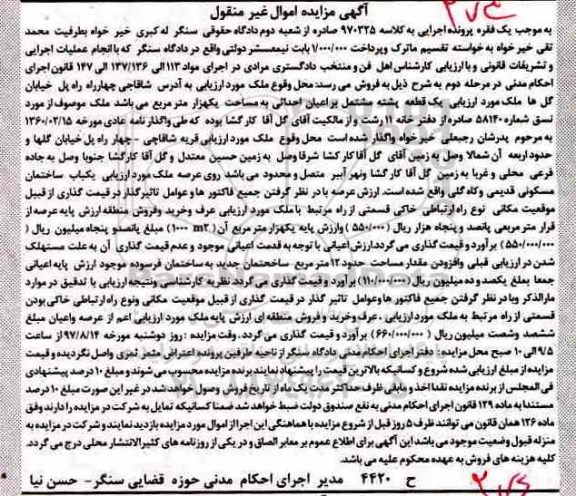 آگهی مزایده اموال غیر منقول
به موجب یک فقره پرونده اجرایی به کلاسه ۹۷۰۳۲۵ صادره از شعبه دوم دادگاه حقوقی سنگر له کبری خیر خواه بطرفیت محمد
تقی خیر خواه به خواسته تقسیم ماترک وپرداخت ۱/۰۰۰/۰۰۰ بابت نیمعسشر دولتی واقع در دادگاه سنگر که با انجام عملیات اجرایی
و تشریفات قانونی و با ارزیابی کارشناس اهل فن و منتخب دادگستری مرادی در اجرای مواد ۱۱۳ الی ۱۳۷/۱۳۶ الی ۱۴۷ قانون اجرای
احکام مدنی در مرحله دوم به شرح ذیل به فروش می رسد: محل وقوع ملک مورد ارزیابی به آدرس شاقاجی چهارراه راه پل خیابان
گل ها ملک مورد ارزیابی یک قطعه پشته مشتمل بر اعیان احداثی به مساحت یکهزار متر مربع می باشد ملک موصوف از مورد
نسق شماره ۵۸۱۴۰ صادره از دفتر خانه ۱۱ رشت و از مالکیت آقای گل آقا کار گشا بوده که طی واگذارنامه عادی مورخه ۱۳۶۰/۰۲/۱۵
به مرحوم پدرشان رجبعلی خیر خواه واگذار شده است محل وقوع ملک مورد ارزیابی قریه شاقاجی -چهار راه پل خیابان گلها و
حدود اربعه آن شمالا وصل به زمین آقای گل آقا کار گشا شرقا وصل به زمین حسین معتدل و گل آقا کارگشا جنوبا وصل به جاده
فرعی محلی و غربا به زمین گل آقا کارگشا ونهر آببر متصل و محدود می باشد روی عرصه ملک مورد ارزیابی یکباب ساختمان
مسکونی قدیمی و کاه گلی واقع شده است. ارزش عرصه با در نظر گرفتن جمیع فاکتور ها و عوامل تاثیر گذار در قیمت گذاری از قبیل
موقعیت مکانی نوع راه ارتباطی خاکی قسمتی از راه مرتبط با ملک مورد ارزیابی عرف وخرید وفروش منطقه ارزش پایه عرصه از
قرار متر مربعی پانصد و پنجاه هزار ریال (۵۵۰/۰۰۰) وارزش پایه یکهزار متر مربع آن (۱۰۰۰ m2) مبلغ پانصدو پنجاه میلیون ریال (
۵۵۰/۰۰۰/۰۰۰) برآورد و قیمت گذاری می گردد.ارزش اعیانی با توجه به قدمت اعیانی موجود و عدم قیمت گذاری آن به علت مستهلک
شدن در ارزیابی قبلی وافزودن مقدار مساحت حدود ۱۲ متر مربع ساختمان جدید به ساختمان فرسوده موجود ارزش پایه اعیانی
جمعا بملغ یکصد و ده میلیون ریال (۱۱۰/۰۰۰/۰۰۰) برآورد و قیمت گذاری می گردد. نظریه کارشناسی ونتیجه ارزیابی با تدقیق در موارد
مارالذکر وبا در نظر گرفتن جمیع فاکتور ها وعوامل تاثیر گذار در قیمت گذاری از قبیل موقعیت مکانی ونوع راه ارتباطی خاکی بودن
قسمتی از راه مرتبط به ملک مورد ارزیابی ، عرف وخرید و فروش منطقه ای ارزش پایه ملک مورد ارزیابی اعم از عرصه واعیان مبلغ
ششصد وشصت میلیون ریال (۶۶۰/۰۰۰/۰۰۰) برآورد و قیمت گذاری می گردد. وقت مزایده : روز دوشنبه مورخه ۹۷/۸/۱۴ از ساعت
۹/۵ الی ۱۰ صبح محل مزایده : دفتر اجرای احکام مدنی دادگاه سنگر از ناحیه طرفین پرونده اعتراض مثمر ثمری واصل نگردیده و قیمت
مزایده از مبلغ ارزیابی شده شروع و کسانیکه بالاترین قیمت را پیشنهاد نمایند برنده مزایده محسوب می شوند و مبلغ ۱۰ درصد پیشنهادی
فی المجلس از برنده مزایده نقدا اخذ و مابقی ظرف حداکثر مدت یک ماه از تاریخ فروش وصول خواهد شد در غیر این صورت مبلغ ۱۰ درصد
مستندا به ماده ۱۲۹ قانون اجرای احکام مدنی به نفع صندوق دولت ضبط خواهد شد ضمنا کسانیکه تمایل به شرکت در مزایده را دارند وفق
ماده ۱۲۶ همان قانون می توانند ظرف ۵ روز قبل از شروع مزایده با هماهنگی این اجرا از اموال مورد مزایده بازدید نمایند و شرکت در مزایده به
منزله قبول وضعیت موجود می باشد این آگهی برای اطلاع عموم بر معابر الصاق و در یکی از روزنامه های کثیرالانتشار محلی درج می گردد.
کلیه هزینه های فروش به عهده محکوم علیه می باشد.
ح ۴۴۲۰ مدیر اجرای احکام مدنی حوزه قضایی سنگر- حسن نیا